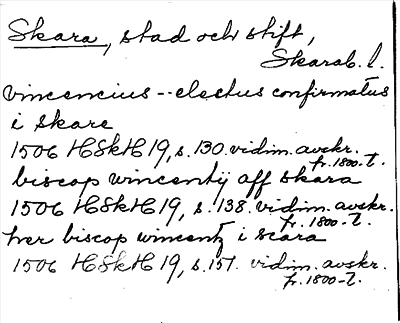 Skara, stad och stift,
Skarab. l.
vincencius -- electus confirmatus
i skare
1506 HSkH 19, s. 130. vidim. avskr.
fr. 1800-t.
biscop wincentij aff skara
1506 HSkH 19, s. 138. vidim. avskr.
fr. 1800-t.
her biscop wincentz i scara
1506 HSkH 19, s. 151. vidim. avskr.
fr. 1800-t.